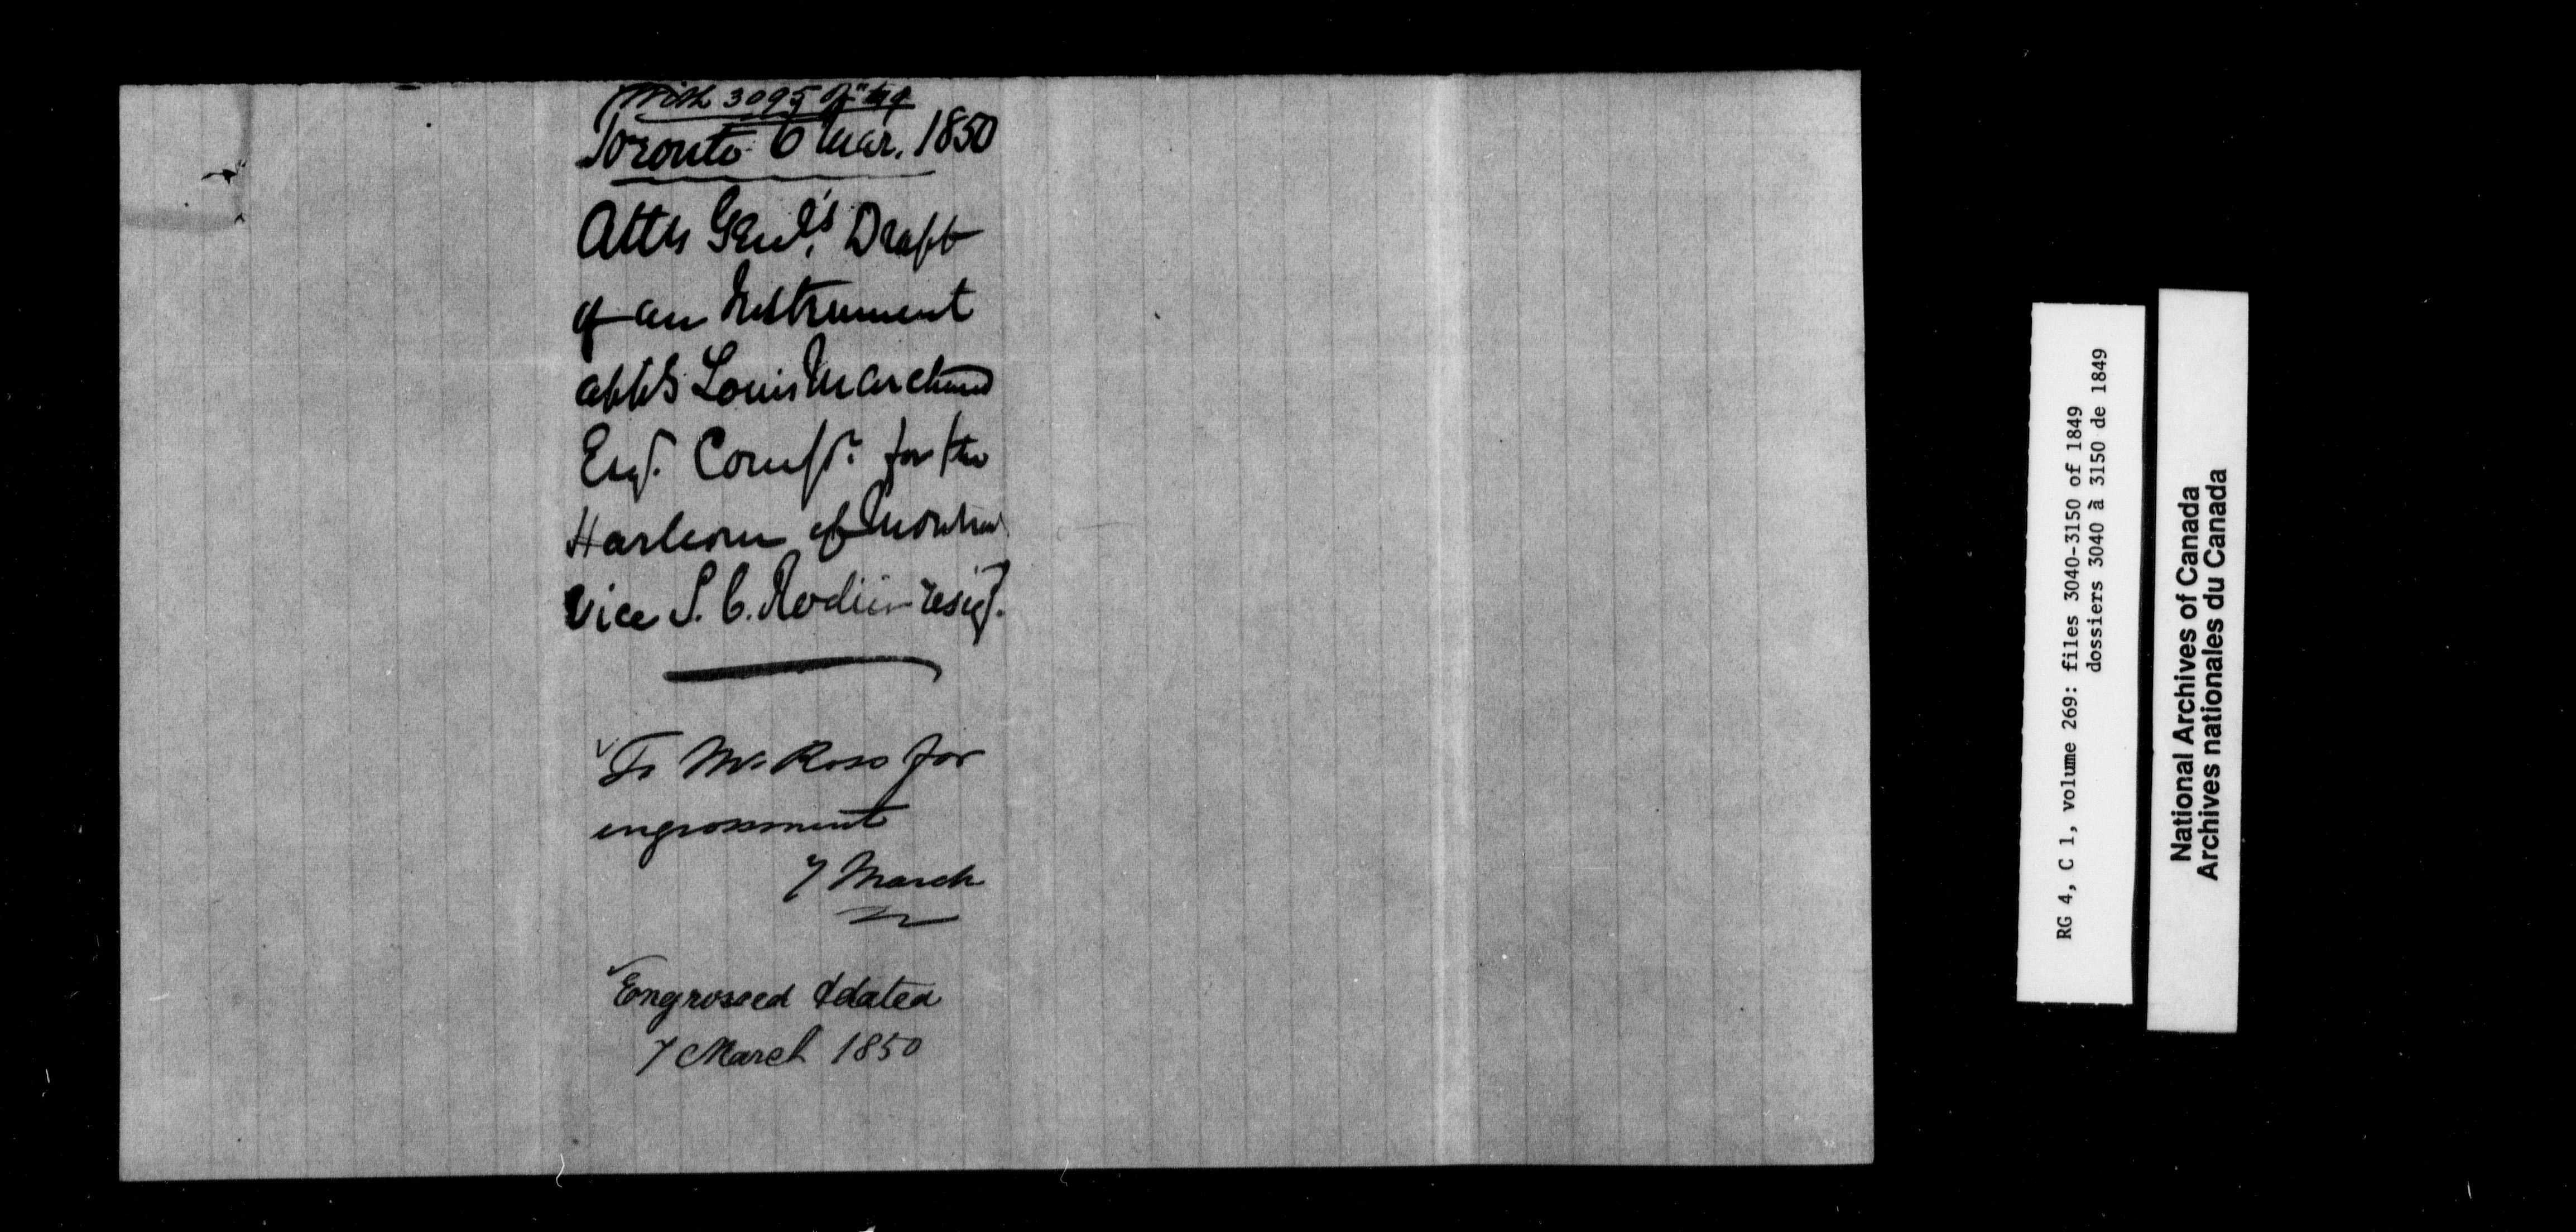 With 3095 of "49
Toronto 6 Mar. 1850
Atty Genl's Draft
of an Instrument
appg Louis Marchand
Esqr. Commr. for the
Harbour of Montreal
vice S. C. Rodier resigd.
To Mr Ross for
engrossment
7 March
Engrossed & dated
7 March 1850
RG 4, C 1, volume 269: files 3040-3150 of 1849
dossiers 3040 à 3150 de 1849
National Archives of Canada
Archives nationales du Canada